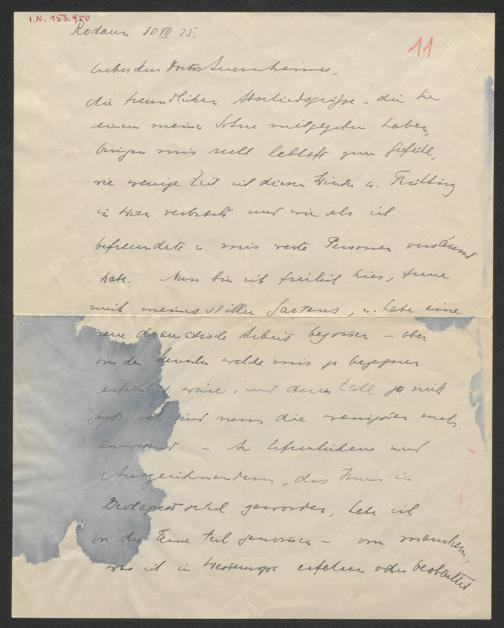 I.N. 153.950
Rodaun 10 VII 25.
11
lieber Herr Doctor Auernheimer,
die freundlichen Abschiedsgrüsse, die Sie
einem meiner Söhne mitgegeben haben,
bringen mir recht lebhaft zum Gefühl,
wie wenige Zeit ich diesen Winter u. Frühling
in Wien verbracht und wie als ich
befreundete u. mir werte Personen versäumt
habe. Nun bin ich freilich hier, freue
mich meines stillen Gartens, u. habe eine
neue dramatische Arbeit begonnen – aber
von den Menschen welche mir zu begegnen
erfreulich wäre, und deren Zahl ja nicht
groß ist, sind nun die wenigsten mehr
anwesend. – An Erfreulichem und
Auszeichnendem, das Ihnen in
Budapest zuteil geworden, habe ich
in der Ferne teil genommen – von manchem,
was ich in Westeuropa erfahren oder beobachtet